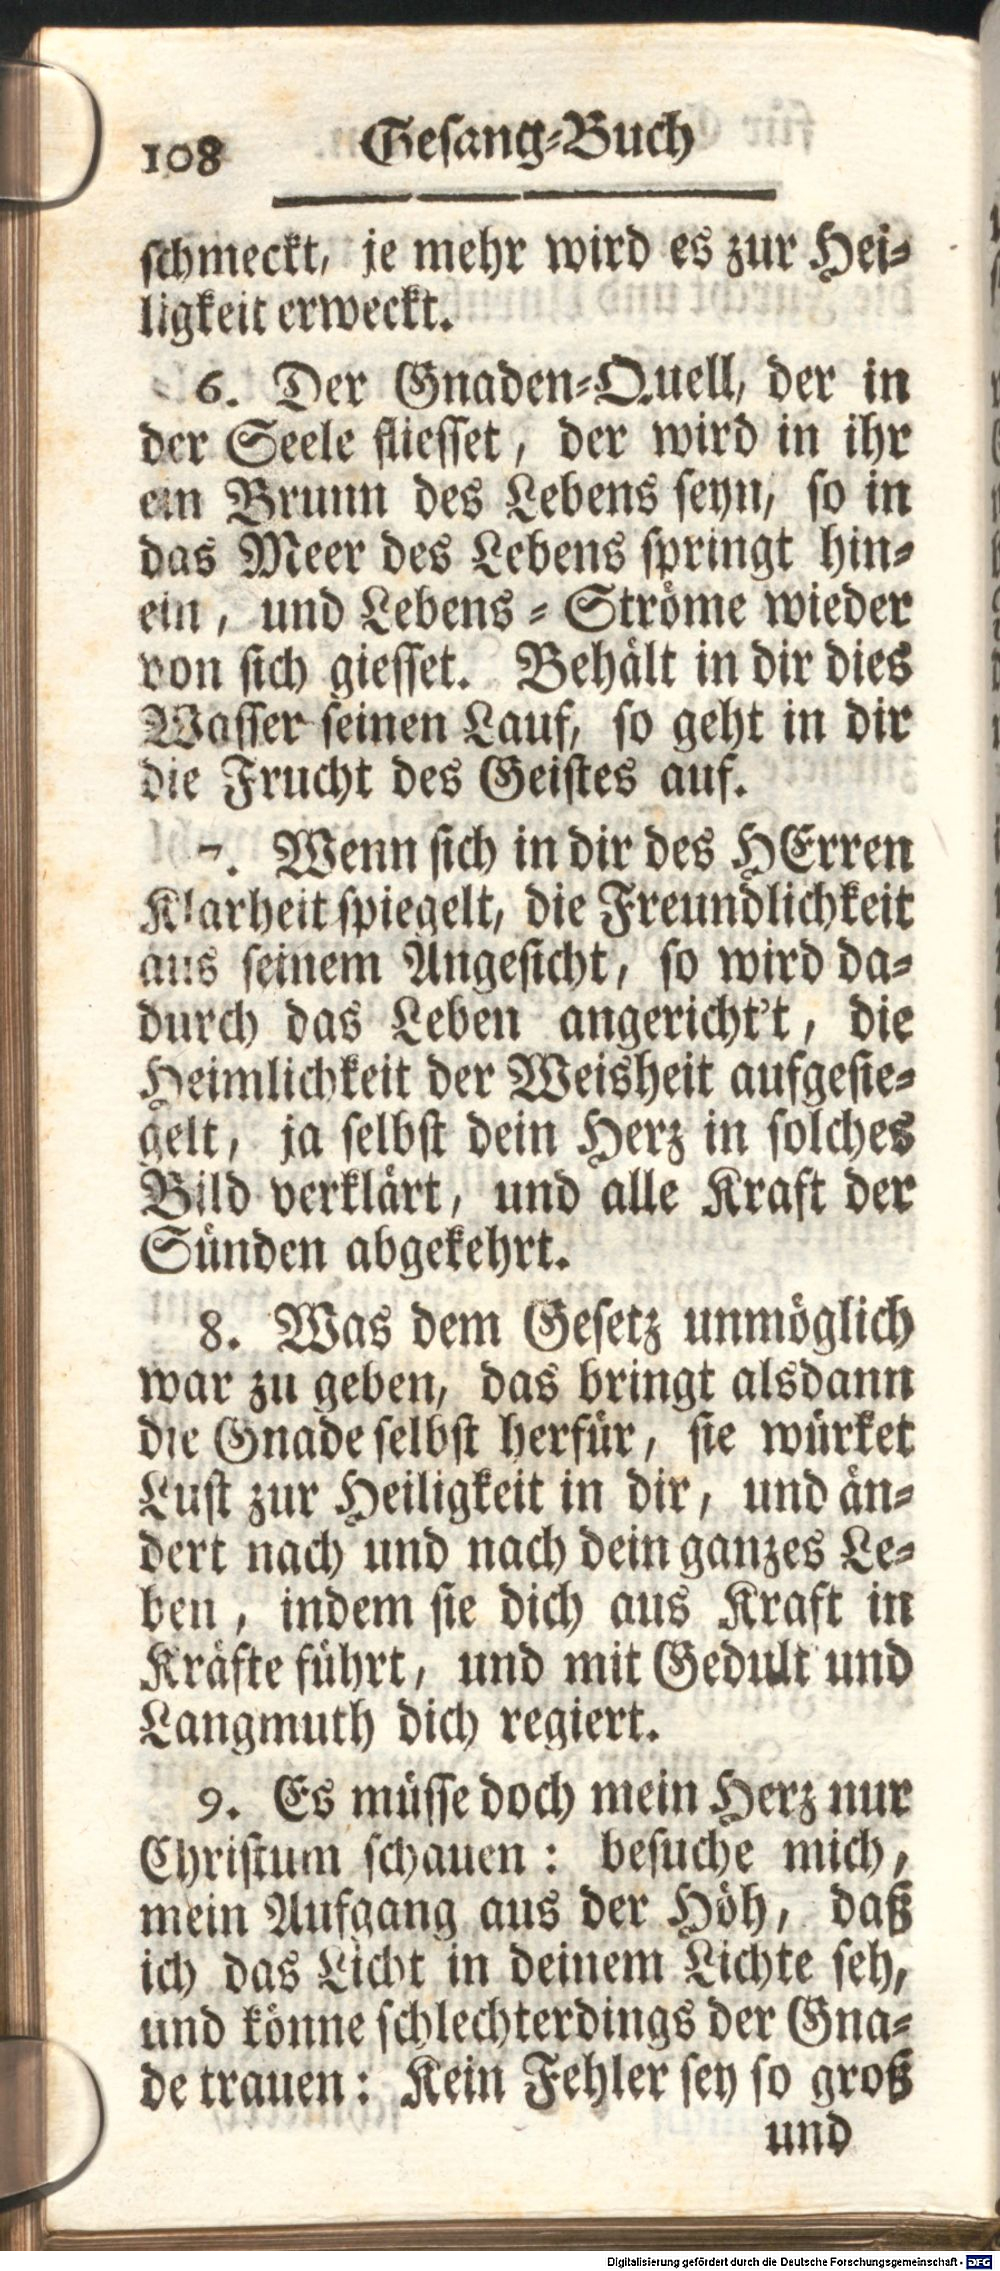 108 Gesang-Buch
schmeckt, je mehr wird es zur Hei-
ligkeit erweckt.
6. Der Gnaden-Quell, der in
der Seele fliesset, der wird in ihr
ein Brunn des Lebens seyn, so in
das Meer des Lebens springt hin-
ein, und Lebens-Ströme wieder
von sich giesset. Behält in dir dies
Wasser seinen Lauf, so geht in dir
die Frucht des Geistes auf.
7. Wenn sich in dir des HErren
Klarheit spiegelt, die Freundlichkeit
aus seinem Angesicht, so wird da-
durch das Leben angericht't, die
Heimlichkeit der Weisheit aufgesie-
gelt, ja selbst dein Herz in solches
Bild verklärt, und alle Kraft der
Sünden abgekehrt.
8. Was dem Gesetz unmöglich
war zu geben, das bringt alsdann
die Gnade selbst herfür, sie würket
Lust zur Heiligkeit in dir, und än-
dert nach und nach dein ganzes Le-
ben, indem sie dich aus Kraft in
Kräfte führt, und mit Gedult und
Langmuth dich regiert.
9. Es müsse doch mein Herz nur
Christum schauen: besuche mich,
mein Aufgang aus der Höh, daß
ich das Licht in deinem Lichte seh,
und könne schlechterdings der Gna-
de trauen: Kein Fehler sey so groß
und
Digitalisierung gefördert durch die Deutsche Forschungsgemeinschaft - DFG